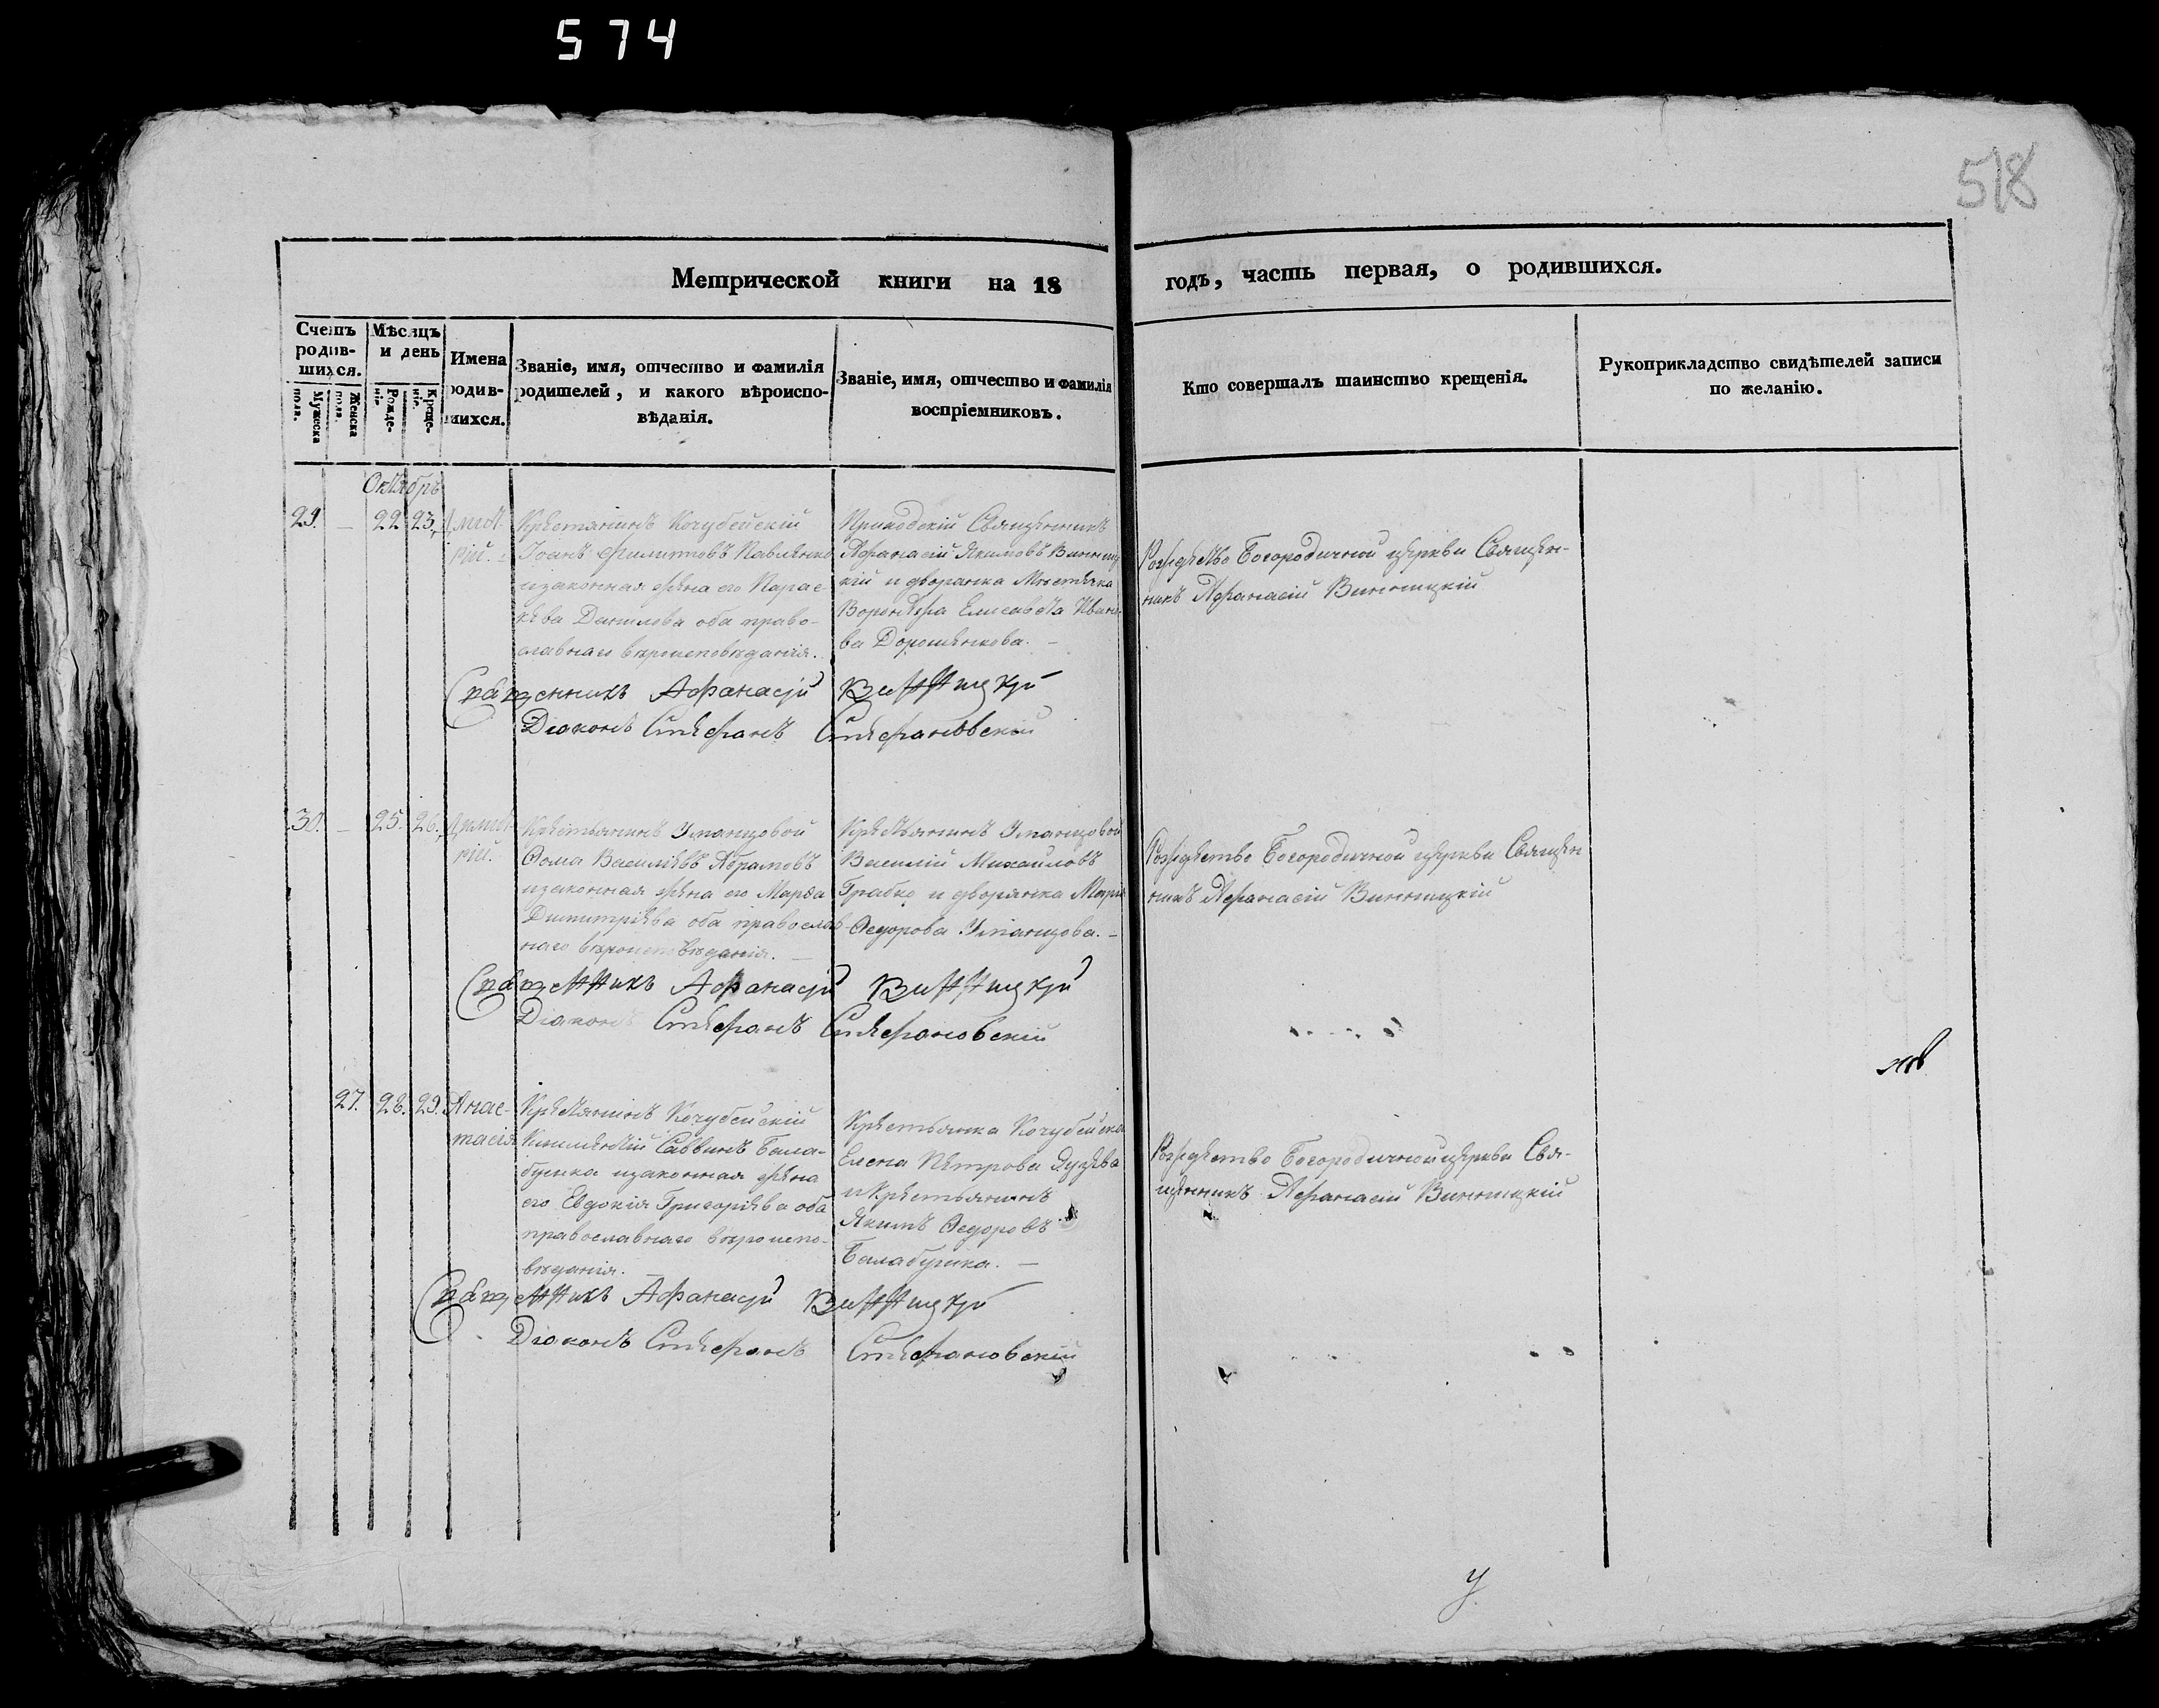 574
518
Метрической книги на 18 годъ, часть первая, о родившихся.
Счетъ родив-шихся.
Мужеска пола.
Женска пола.
Мѣсяцъ и день
Рожде-ніе
Креще-ніе.
Имена родив-шихся.
Званіе, имя, отчество и фамилія
родителей, и какого вѣроиспо-
вѣданія.
Званіе, имя, отчество и фамилія
воспріемниковъ.
Кто совершалъ таинство крещенія.
Рукоприкладство свидѣтелей записи
по желанію.
Октябрь
29. — 22 23.
Крестянинъ Кочубейскій
Іоанъ Филиповъ Павленко
изаконная жена его Парас-
кева Данилова оба право-
славнаго вѣроисповѣданія.
Приходскій Священникъ
Афанасій Якимовъ Винниц
кій и дворянка Мѣстечка
Воронежа Елисавета Ивано
ва Дорошенкова. —
Рождество Богородичной церкви Священ-
никъ Афанасій Винницкій
Священникъ Афанасій Винницкій
Діаконъ Стефанъ Стефановскій
30. — 25. 26. Дими-
рій.
Крестьянинъ Уманцовой
Ѳома Васильевъ Абрамовъ
изаконная жена его Марѳа
Димитріева оба православ
наго вѣроисповѣданія. —
Крестьянинъ Уманцовой
Василій Михайловъ
Грабко и дворянка Марія
Ѳедорова Уманцова. —
Рождество Богородичной церкви Священ
никъ Афанасій Винницкій
Священникъ Афанасій Винницкій
Діаконъ Стефанъ Стефановскій
27. 28. 29. Анас-
тасія
Крестянинъ Кочубейскій
Саввинъ Бала-
бушка изаконная жена
его Евдокія Григоріева оба
православнаго вѣроиспо-
вѣданія. —
Крестьянка Кочубейска
Елена Петрова
и Крестьянинъ
Якимъ Ѳедоровъ
Балабушка. —
Рождество Богородичной церкви Свя-
щенникъ Афанасій Винницкій
Священникъ Афанасій Винницкій
Діаконъ Стефанъ Стефановскій